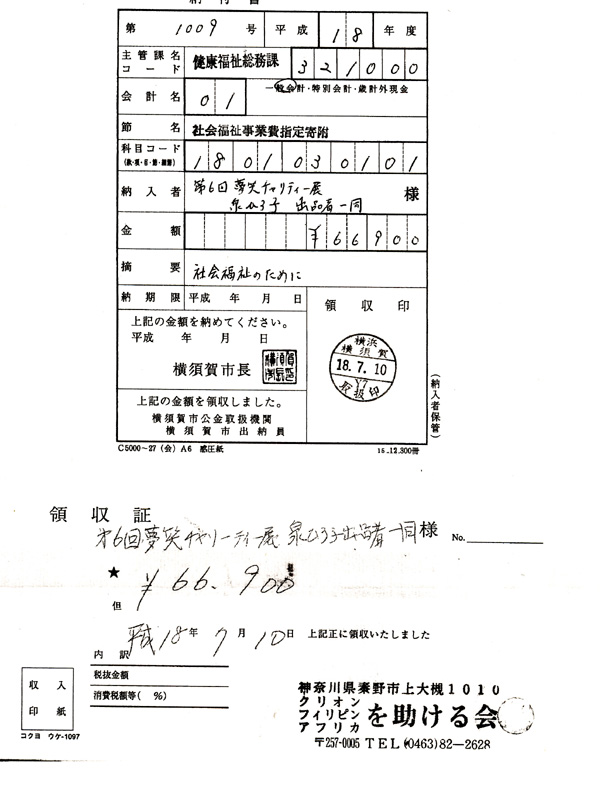 納付書
第 1009 号 平成 18 年度
主管課名コード 健康福祉総務課 321000
会計名 01 一般会計・特別会計・歳計外現金
節名 社会福祉事業費指定寄附
科目コード (款・項・目・節・細節) 18010 30101
納入者 第6回 夢笑チャリティー展
泉ひろ子 出品者一同 様
金額 ¥66900
摘要 社会福祉のために
納期限 平成 年 月 日 領収印
上記の金額を納めてください。
平成 年 月 日
横須賀市長
横浜
横須賀
18.7.10
取扱印
上記の金額を領収しました。
横須賀市公金取扱機関
横須賀市出納員
(納入者保管)
C5000~27 (会) A6 感圧紙 15.12.300冊
領収証
第6回夢笑チャリーティー展 泉ひろ子出品者一同様 No.
★ ¥66.900
但
平成18年7月10日 上記正に領収いたしました
内訳
税抜金額
消費税額等( %)
収入
印紙
コクヨ ウケ-1097
神奈川県秦野市上大槻1010
クリオン
フィリピン
アフリカ
を助ける会
〒257-0005 TEL(0463)82-2628